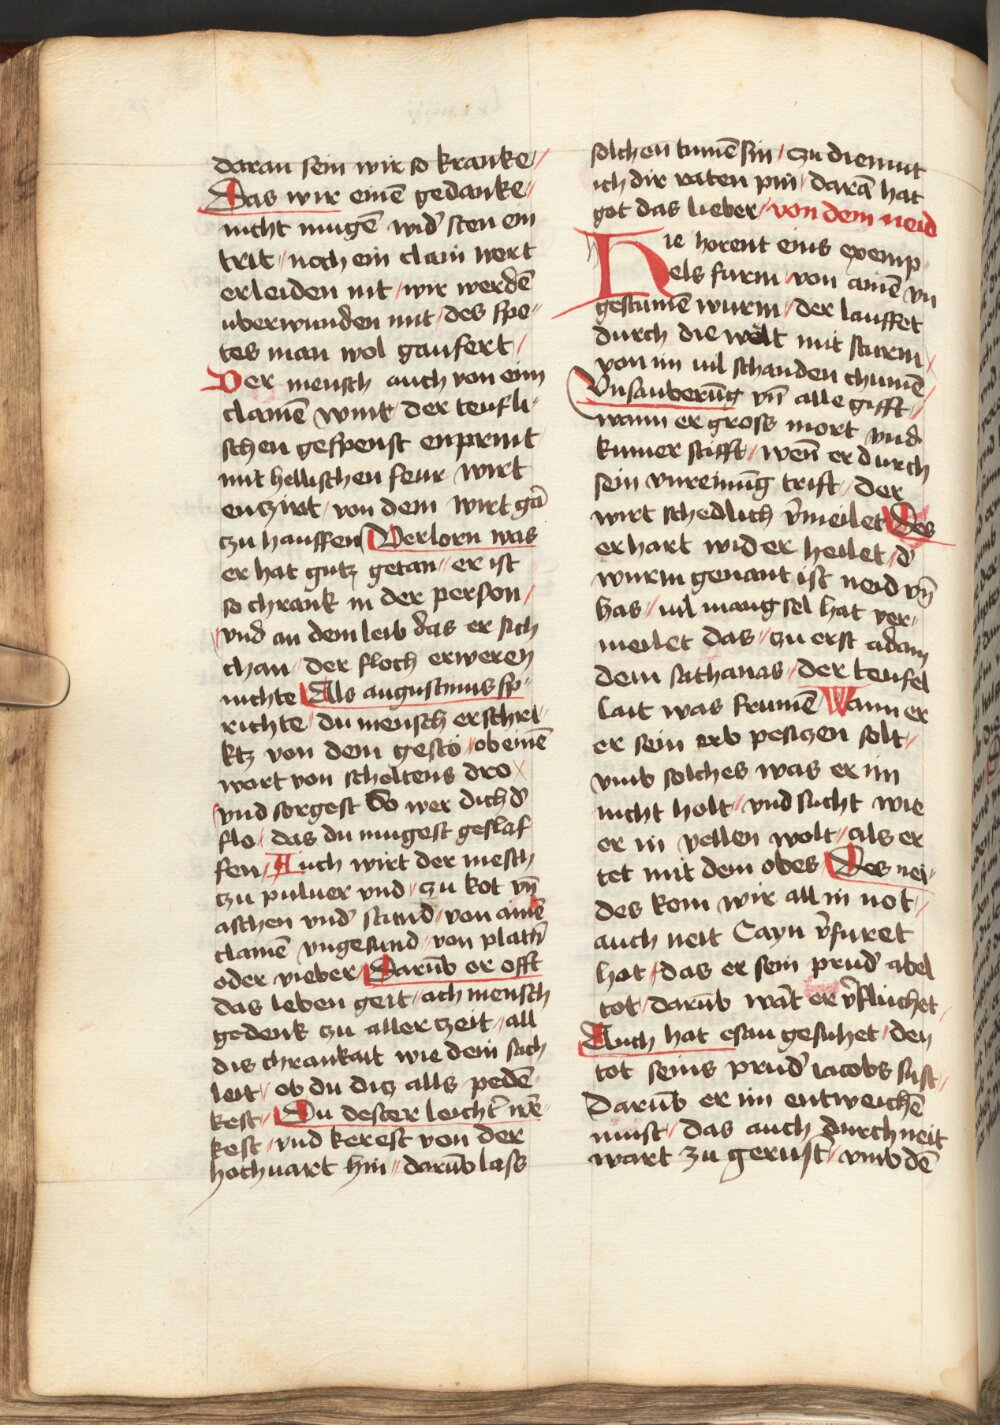 daran sein wir so kranke /
Das wir einē gedanke //
nicht mugē wid' sten ein
trit / noch ein clain wort
erleiden nit / wir werdē
uberwunden mit / des spe=
tes man wol gaufert /
Der mensch auch von eim
clainē wint / der teufli=
schen gespenst enprint
mit hellischen feur wirt
enzint / von dem wirt gā
zu hauffen / Verlorn was
er hat gutz getan // er ist
so chrank in der person /
vnd an dem leib das er sich
chan / der floch erweren
nichte / Als augustinus sp=
richte / du mensch erschri=
ktz von dem gesto / ob einē
wort von scholtens dro /
vnd sorgest So wer dich d'
flo / das du mugest geslaf
fen / Auch wirt der mesch
zu puluer vnd / zu kot vn̄
aschen vnd stand / von ainē
clainē vngesund / von plat'n
oder vieber / Darūb er offt
das leben geit / ach mensch
gedenk zu aller zeit / all
dis chrankait wie dein sach
leit / ob du diz alls pedē=
kest / Du dester leicht' wē=
kest / vnd kerest von der
hochuart hin // darūb lass
solchen tumē sin / zu diemut
ich dir raten pin / darā hat
got das lieber / von dem neid
Hie horent eins exemp=
els furm / von ainē vn
gestumē wurm / der lauffet
durch die welt mit sturm /
von im uil schanden chumē /
Vnsauberūg vn̄ alle gifft /
wann er gross mort vnd
kumer stifft / wen̄ er durch
sein vnreinūg trift / der
wirt schedlich v'meilet / Des
er hart wider heilet / d'
wurm genant ist neid vn̄
has / uil mangsel hat ver=
meilet das / zu erst adam
dem sathanas / der teufel
lait was frumē / Wann er
er sein erb pesizen solt /
vmb solches was er im
nicht holt / vnd sucht wie
er in vellen wolt / als er
tet mit dem obes / Des nei=
des kom wir all in not /
auch neit Cayn v'furet
hat / das er sein prud' abel
tot / darūb wāt er v'fluchet /
Auch hat esau gesuhet / den
tot seins prud' iacobs sust /
Darūb er im entweichē
must / das auch durch neit
wart zu gerust / vmb dē